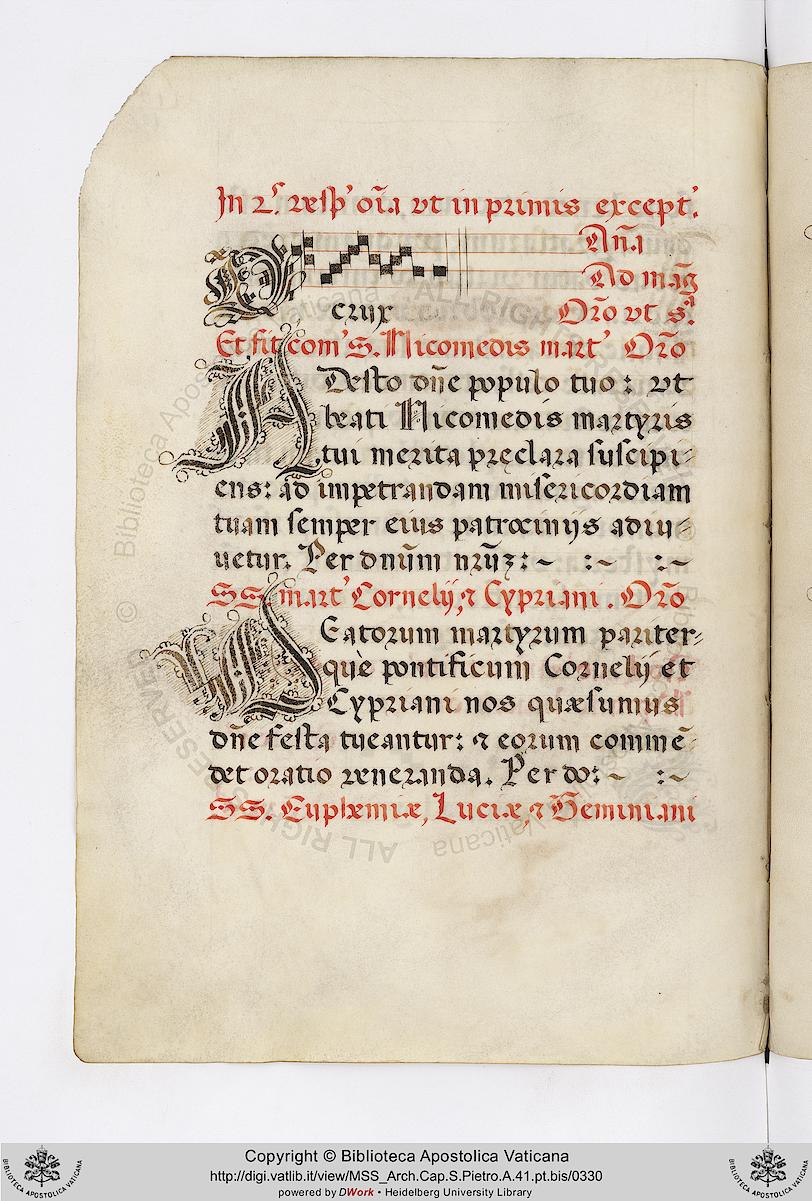 In 2.ͬ vesp' oĩa vt in primis except'.
Añ̃a
Ad mag̃
O crux
Or̃o vt s.ª
Et fit com' S. Nicomedis mart' Or̃o
ADesto dñe populo tuo : vt
beati Nicomedis martyris
tui merita pręclara suscipi-
ens: ad impetrandam misericordiam
tuam semper eius patrocinijs adiu-
uetur. Per dnũm nr̃ũʒ:~ :~ :~
SS. mart' Cornelij, ⁊ Cypriani. Or̃o
BEatorum martyrum pariter-
què pontificum Cornelij et
Cypriani nos quæsumus
dñe festa tueantur: ⁊ eorum commẽ-
det oratio veneranda. Per do:~ :~
SS. Euphemiæ, Luciæ, ⁊ Geminiani
© Biblioteca Apostolica Vaticana ALL RIGHTS RESERVED
Copyright © Biblioteca Apostolica Vaticana
http://digi.vatlib.it/view/MSS_Arch.Cap.S.Pietro.A.41.pt.bis/0330
powered by DWork • Heidelberg University Library
BIBLIOTECA APOSTOLICA VATICANA
BIBLIOTECA APOSTOLICA VATICANA